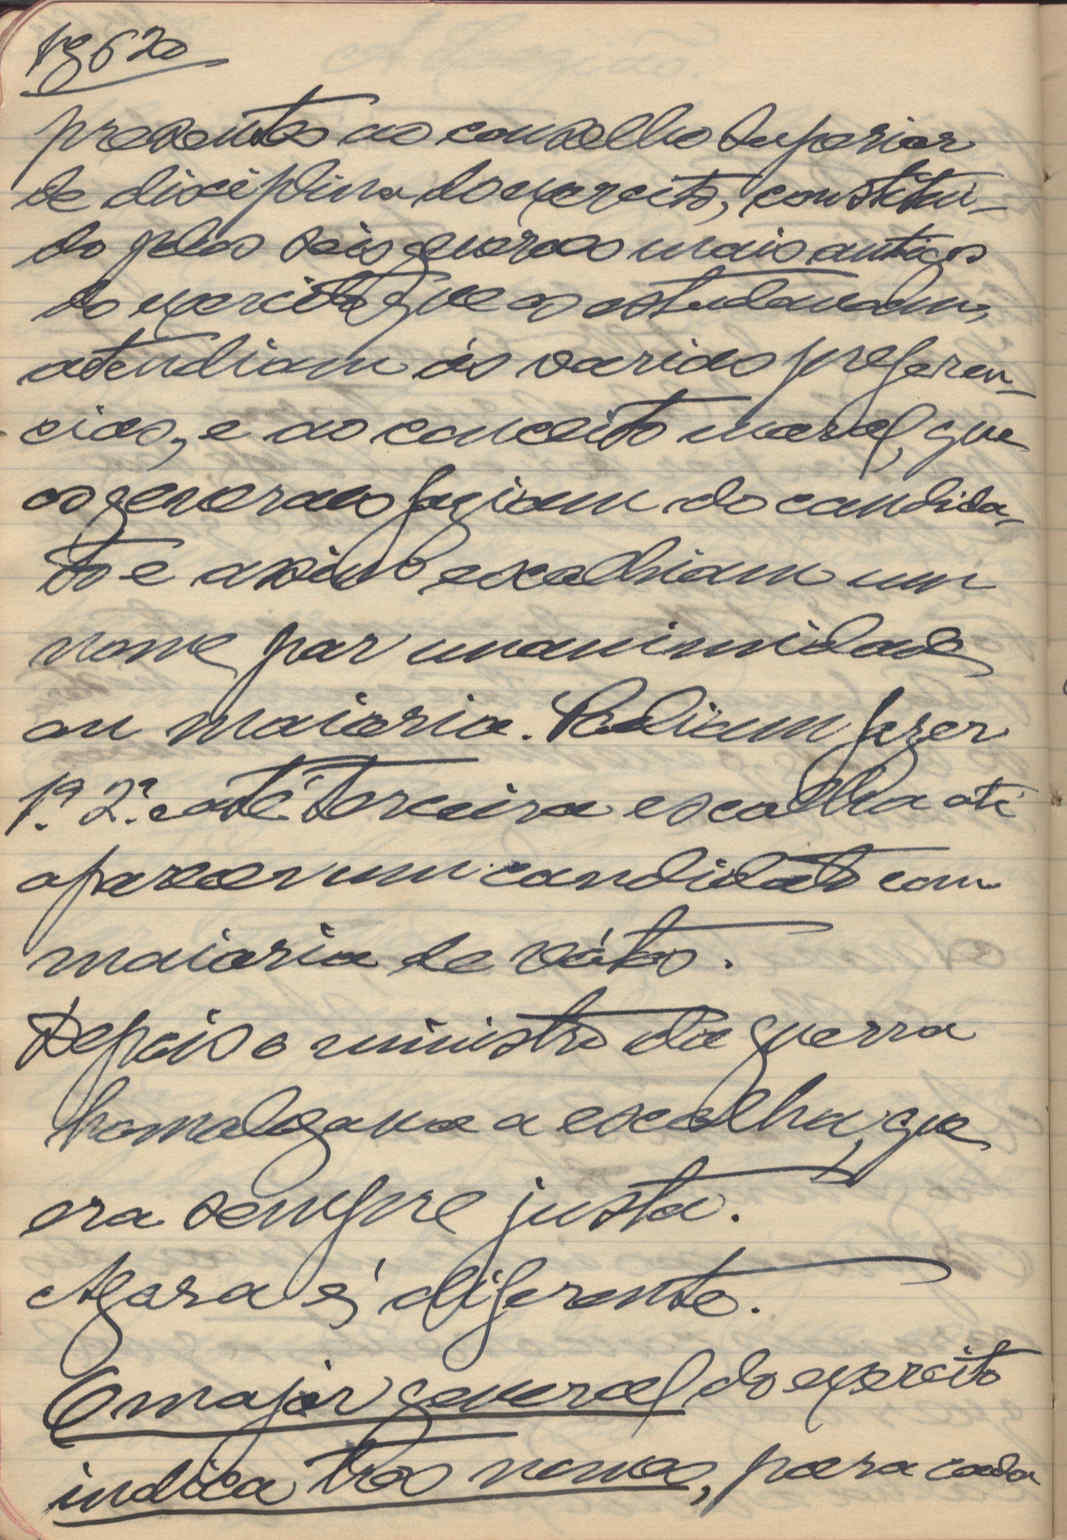 Pg 620
presentes ao conselho superior
de disciplina do exercito, constitui-
do pelos seis generaes mais antigos
do exercito que os estudavam,
atendiam ás varias preferen-
cias, e ao conceito moral, que
os generaes faziam do candida-
to e assim escolhiam um
nome por unanimidade
ou maioria. Podiam fazer
1ª. 2ª. e até terceira escolha até
aparecer um candidato com
maioria de vótos.
Depois o ministro da guerra
homologava a escolha, que
era sempre justa.
Agora é diferente.
O major general do exercito
indica tres nomes, para cada